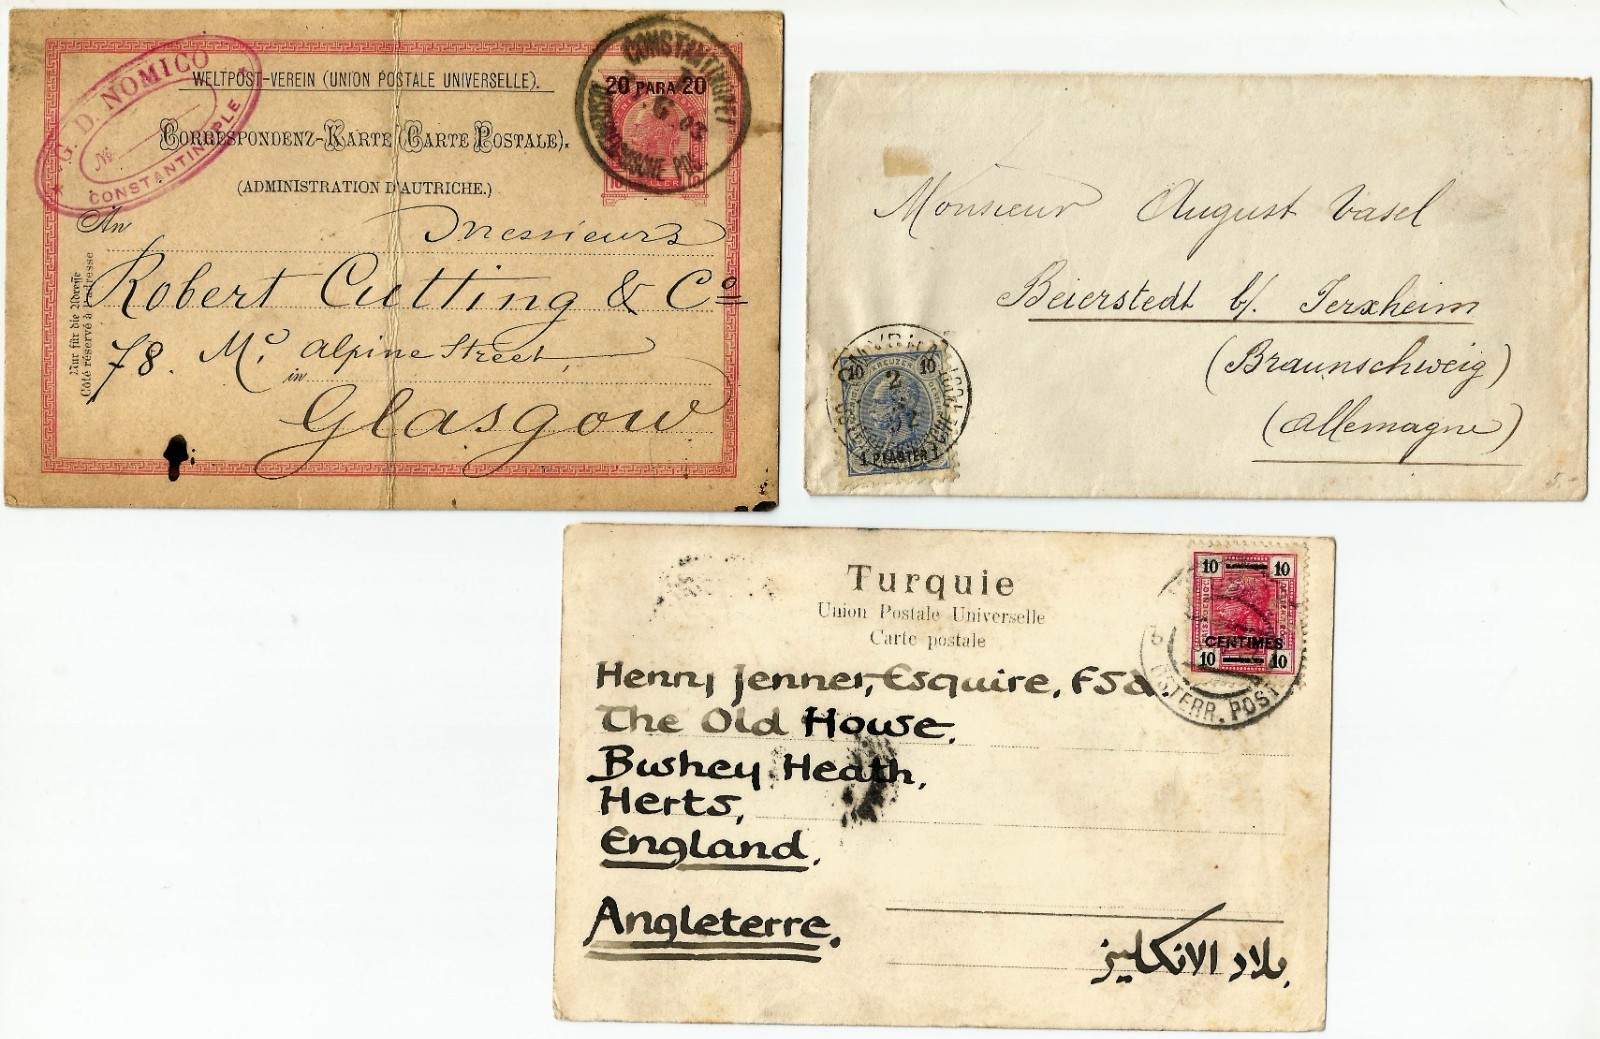 G. D. NOMICO
No
CONSTANTINOPLE
WELTPOST-VEREIN (UNION POSTALE UNIVERSELLE).
CORRESPONDENZ-KARTE (CARTE POSTALE).
(ADMINISTRATION D'AUTRICHE.)
20 PARA 20
10 HELLER 10
CONSTANTINOPEL
ÖSTERREICHISCHE POST
An Messieurs
Robert Cutting & Co
78. Mc. Alpine Street
in
Glasgow
Nur für die Adresse
Côté réservé à l'adresse
Monsieur August Vasel
Beierstedt b/. Jerxheim
(Braunschweig)
(Allemagne)
5.-
10 KREUZER 10
1 PIASTER 1
Turquie
Union Postale Universelle
Carte postale
10 10
CENTIMES
10 10
ÖSTERR. POST
Henry Jenner, Esquire, FSA.
The Old House,
Bushey Heath,
Herts,
England,
Angleterre.
بلاد الانكليز.